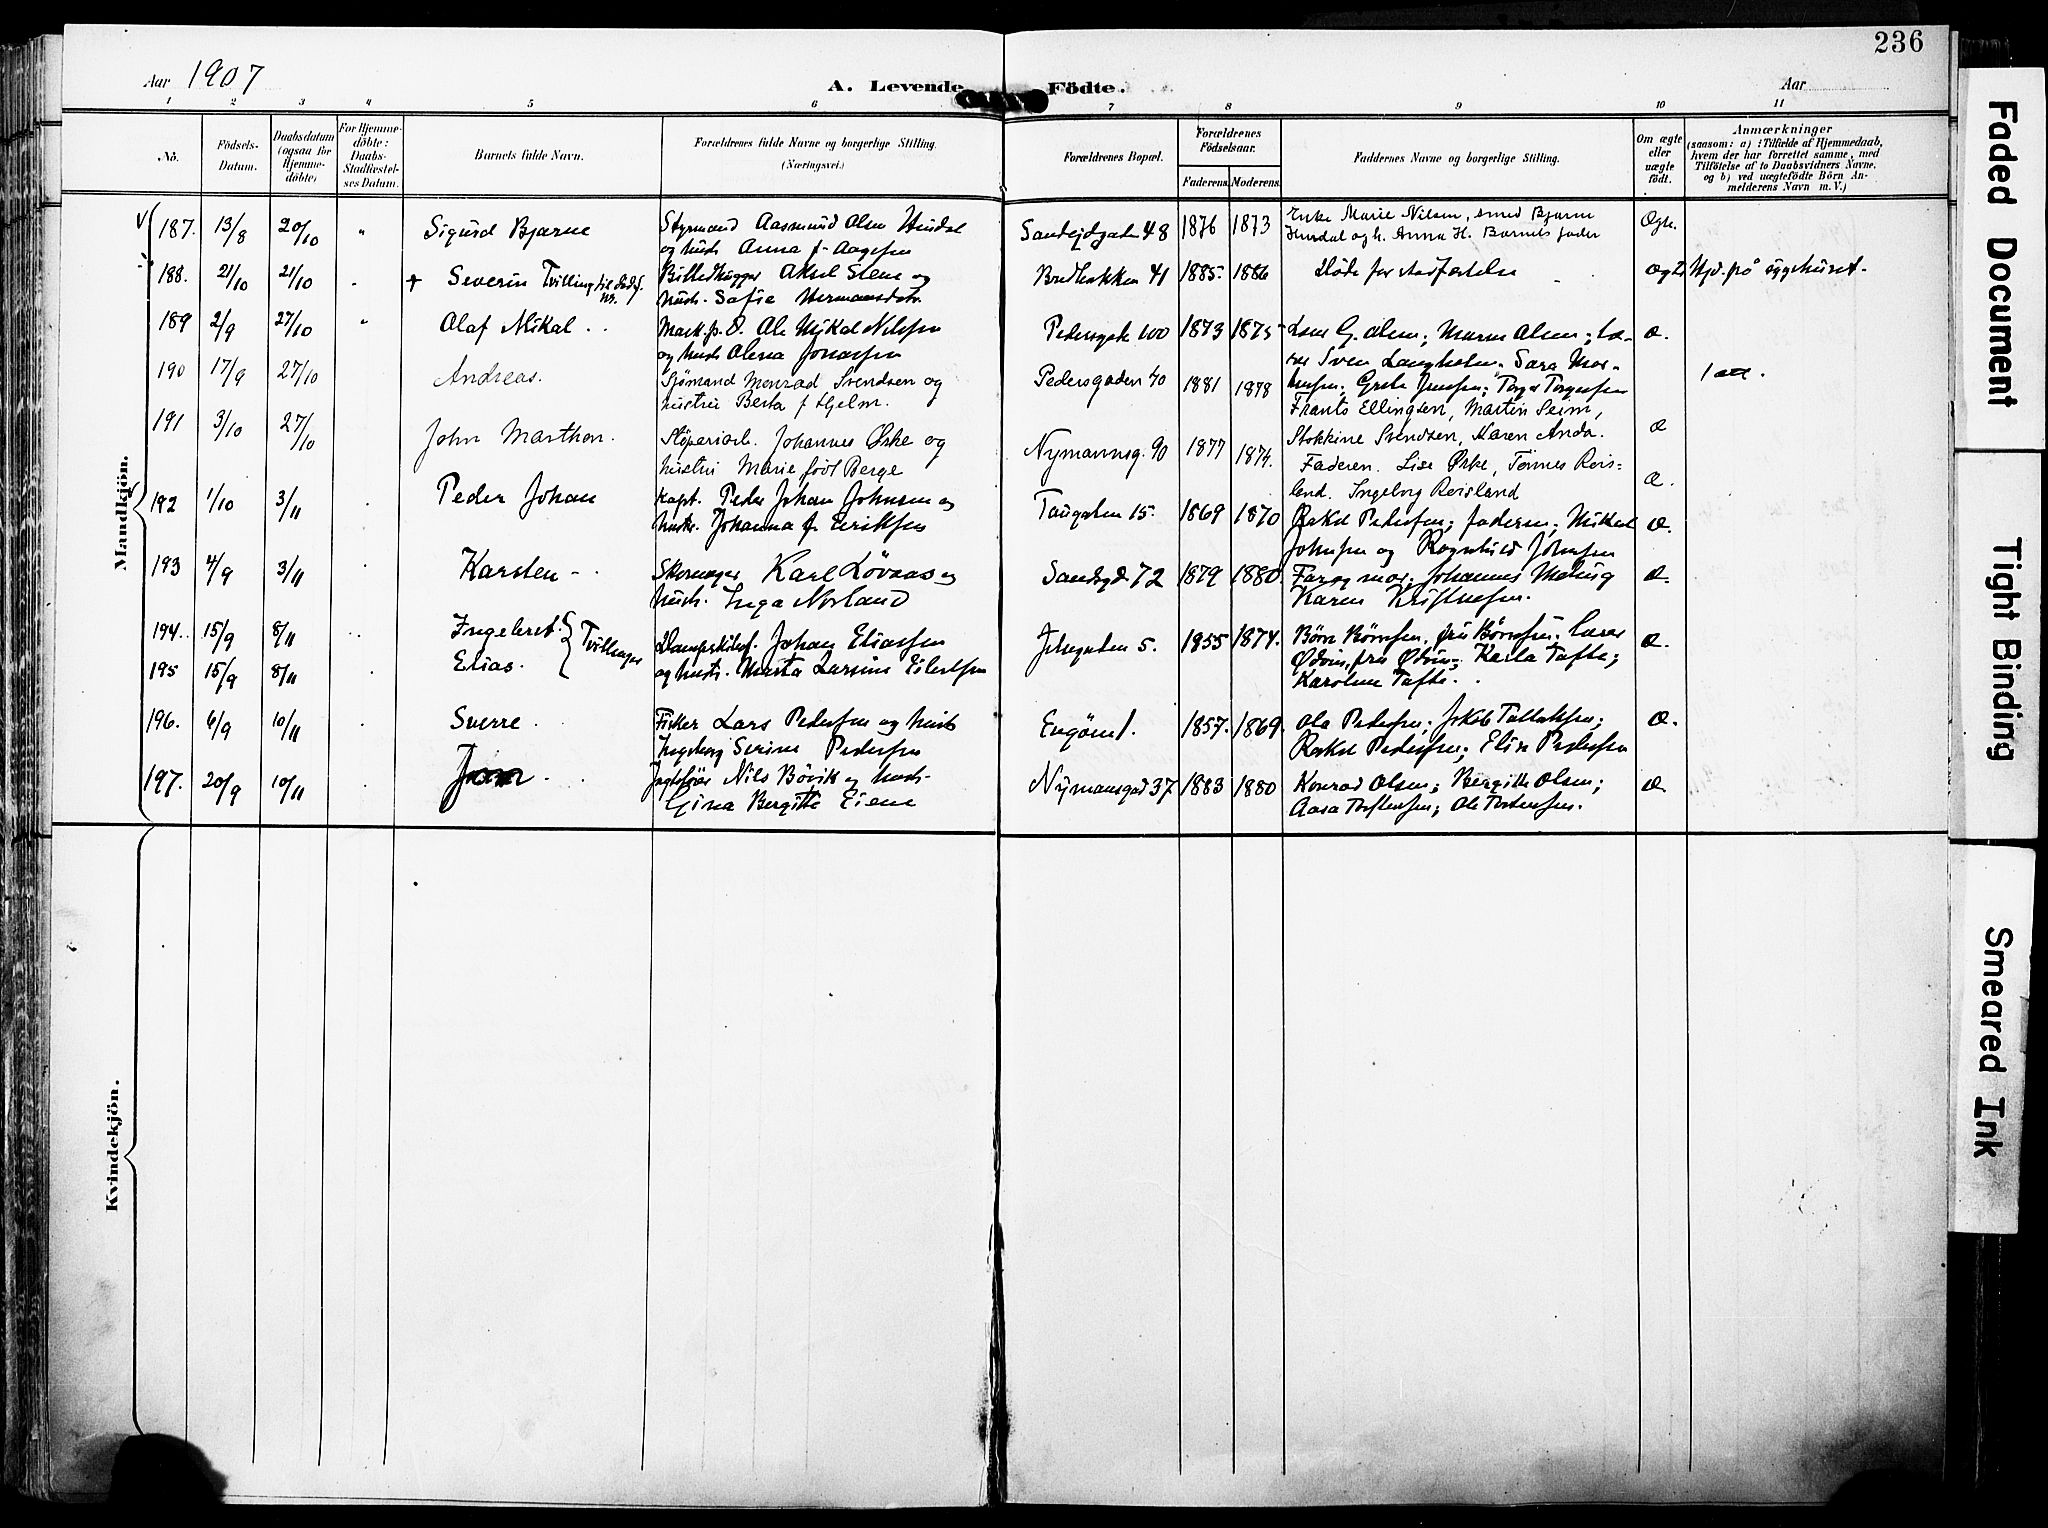 236
Aar 1907
A. Levende Födte.
Aar
1 2 3 4 5 6 7 8 9 10 11
No.
Födsels-Datum.
Daabsdatum (ogsaa for Hjemme-döbte)
For Hjemme-döbte: Daabs-Stadfæstel-ses Datum.
Barnets fulde Navn.
Forældrenes fulde Navne og borgerlige Stilling.
(Næringsvei.)
Forældrenes Bopæl.
Forældrenes Födselsaar.
Faderens. Moderens.
Faddernes Navne og borgerlige Stilling.
Om ægte eller uægte födt.
Anmærkninger
(saasom: a) i Tilfælde af Hjemmedaab,
hvem der har forrettet samme, med
Tilföielse af to Daabsvidners Navne,
og b) ved uægtefödte Börn An-
melderens Navn m. V.)
Mandkjön.
187. 13/8 20/10 " Sigurd Bjarne
Styrmand Aasmund Olen Hindal
og hust. Anna f. Aagesen
Sandeidgaten 48 1876 1873
Enke Marie Nilsen, smed Bjarne
Hindal og h. Anna H. Barnets fader
Ægte.
188. 21/10 21/10 + Severin Tvilling til dødf. nr.
Billedhugger Aksel Stene og
hust. Sofie Hermansdatr.
Bredbakken 41 1885. 1886
Døde før stadfæstelse
Hjd. på sygehuset.
189 2/9 27/10 " Olaf Mikal
Ole Mikal Nilsen
og hust. Olena Jonassen
Pedersgate 100 1873 1875
Lars G. Olsen; Maren Olsen;
æ.
190 17/9 27/10 Andreas.
Sjömand Monrad Svendsen og
hustru Berta f. Hjelm.
Pedersgaden 40 1881 1878
Sven Langholm. Sara
Frants Ellingsen, Martin Seim,
191 3/10 27/10 John Marthon.
Støperiarb. Johannes Øske og
hustru Marie født Berge
Nymannsg. 90 1877 1874.
Stokkine Svendsen, Karen Anda. æ
Faderen. Lise Øske, Tönnes Reis-
land. Ingeborg Reisland æ.
192 1/10 3/11 Peder Johan
Kapt. Peder Johan Johnsen og
hust. Johanna f. Eriksen
Taugaten 15. 1869 1870
Rakel Pedersen; faderen; Mikal
Johnsen og Ragnhild Johnsen
æ.
193 4/9 3/11 Karsten
Skomager Karl Lövaas og
hust. Inga Norland
Sandsgd 72 1879 1880
Far og mor; Johannes Meling
Karen Kristensen.
æ.
194. 15/9 8/11 Ingebret.
195 15/9 8/11 Elias. Tvillinger
Johan Eliassen
og hust. Marta Larsine Eilertsen
5. 1855 1874.
Karla Tafte;
Karoline Tafte.
æ.
196. 6/9 10/11 Sverre.
Fisker Lars Pedersen og hust
Ingeborg Serine Pedersen
Engöen 1. 1857. 1869.
Ola Pedersen; Jakob Tallaksen;
Rakel Pedersen; Elise Pedersen
æ.
197. 20/9 10/11
Nils Bövik og hust.
Gina Bergitte Eiene
Nymansgad 37 1883 1880
Konrad Olsen; Bergitte Olsen;
Aasa Torstensen; Ole Torstensen.
æ
Kvindekjön.
Faded Document
Tight Binding
Smeared Ink